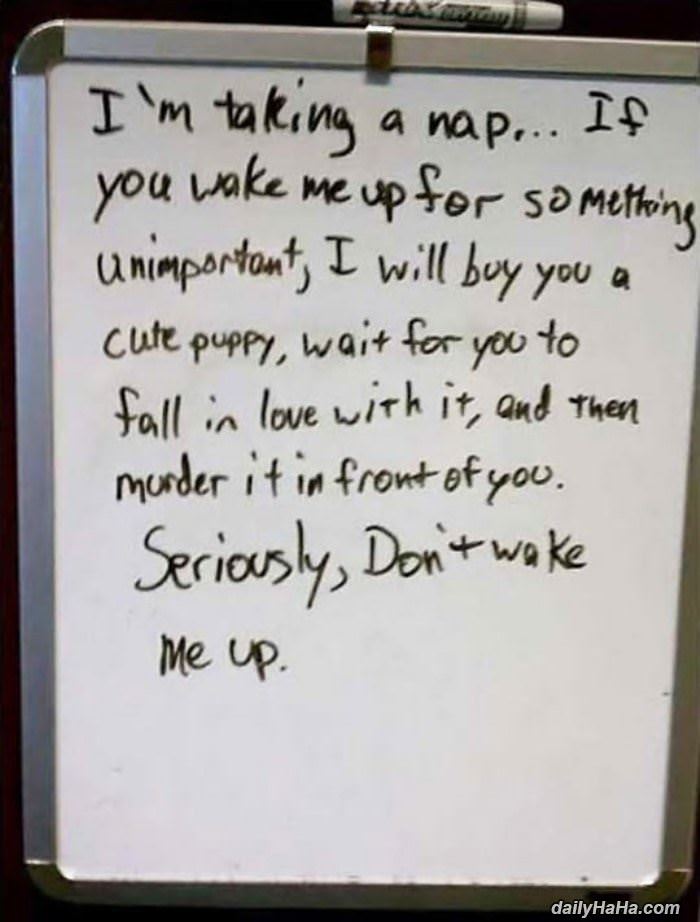 I'm taking a nap... If
you wake me up for something
unimportant, I will buy you a
cute puppy, wait for you to
fall in love with it, and then
murder it in front of you.
Seriously, Don't wake
me up.
dailyHaHa.com